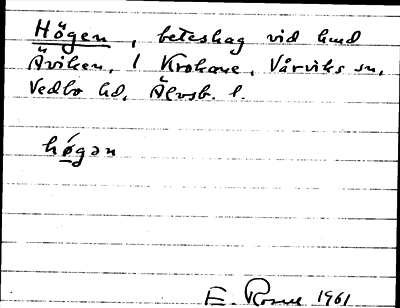 Högen, beteshag vid hmd
Äviken, 1 Krokane, Vårviks sn,
Vedbo hd, Älvsb. l.
högən
E. 1961